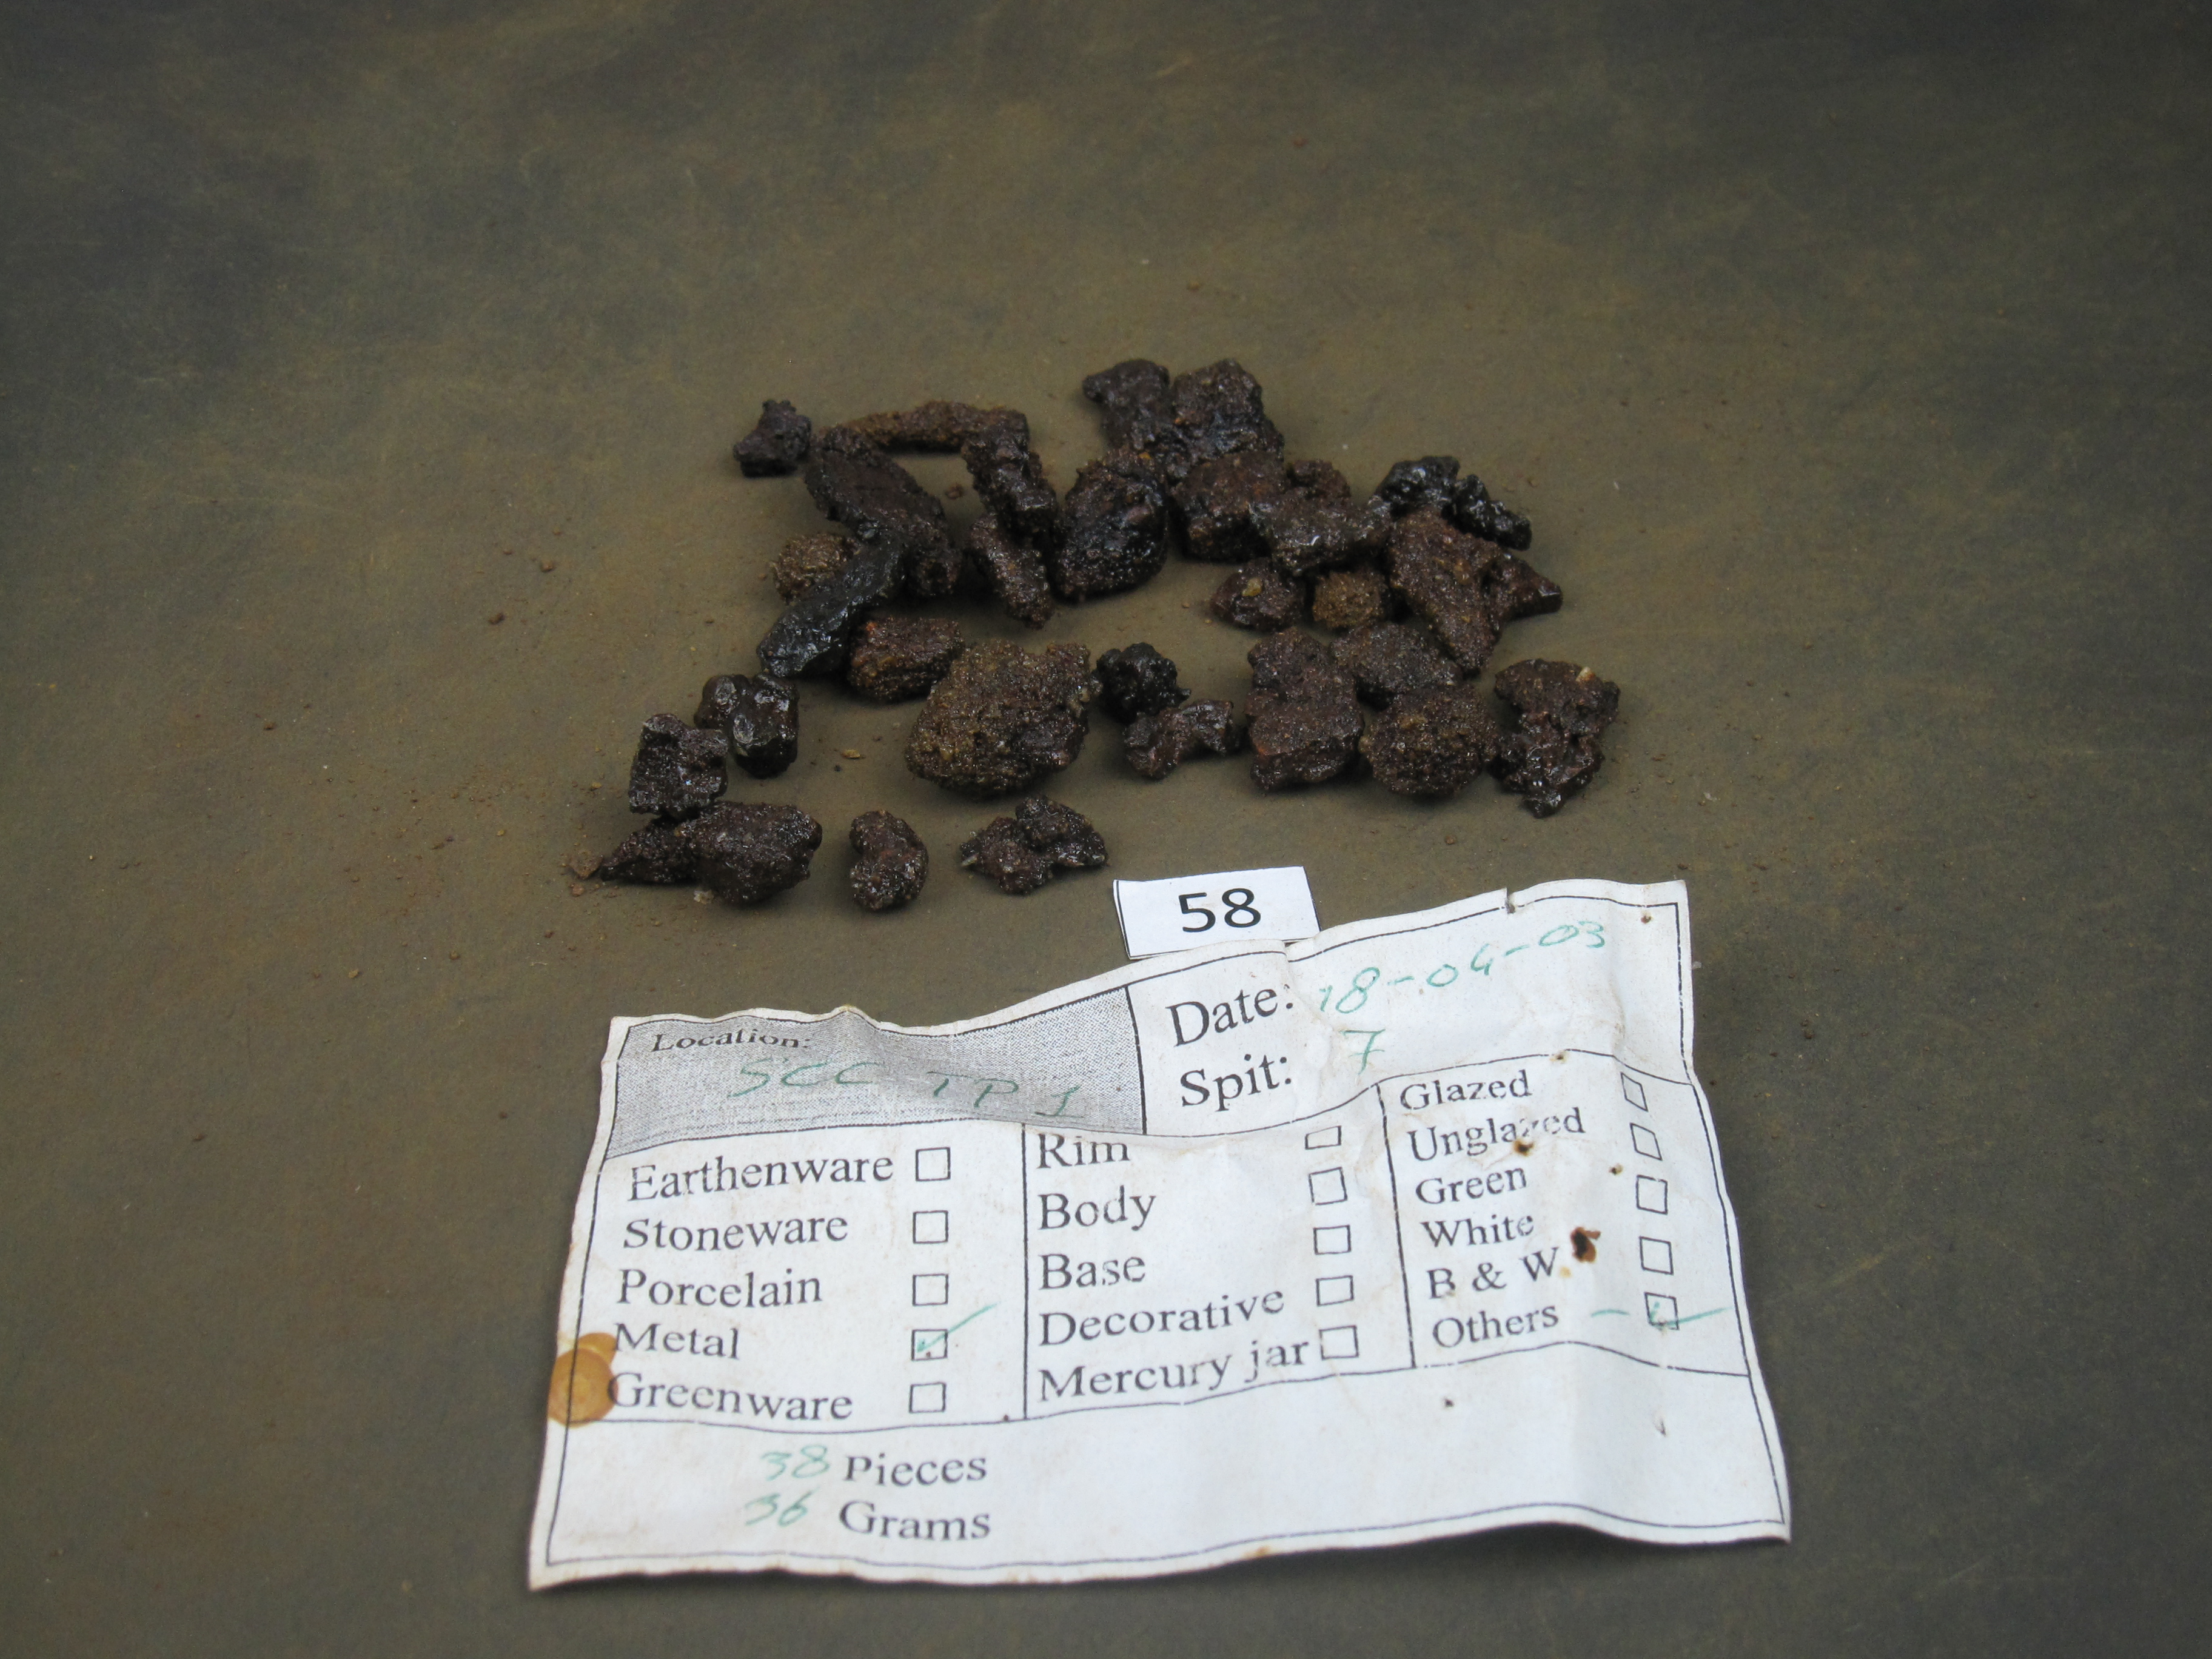 58
Location:
SCC TP 1
Date: 18-04-03
Spit: 7
Earthenware
Stoneware
Porcelain
Metal
Greenware
Rim
Body
Base
Decorative
Mercury jar
Glazed
Unglazed
Green
White
B & W
Others
38 Pieces
36 Grams